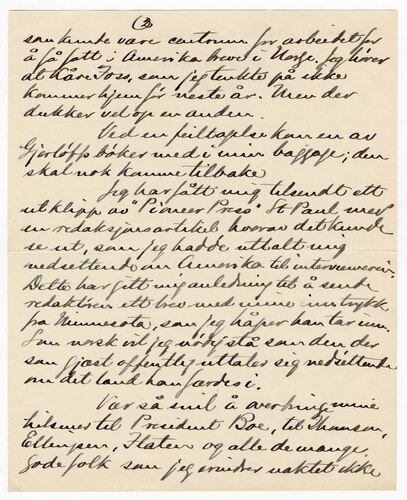 (3)
som kunde være centrum for arbeidet for
å få fatt i Amerika breve i Norge. Jeg hører
at Kåre Foss, som jeg tenkte på ikke
kommer hjem før neste år. Men der
dukker vel op en anden.
Ved en feiltagelse kom en av
Gjerløffs bøker med i min baggage; den
skal nok komme tilbake
Jeg har fått mig tilsendt ett
utklipp av "Pioneer Press" St Paul med
en redaksjonsartikel hvorav det kunde
se ut, som jeg hadde uttalt mig
nedsettende om Amerika til interviewere.
Dette har gitt mig anledning til å sende
redaktören ett brev med mine inntrykk
fra Minnesota, som jeg håper han tar inn.
Som norsk vil jeg nödig stå som den der
som gjest offentlig uttaler sig nedsettende
om det land han færdes i.
Vær så snil å overbring mine
hilsener til President Boe, til Thomson,
Ellingsen, Flaten og alle de mange
gode folk som jeg erindrer uaktet ikke